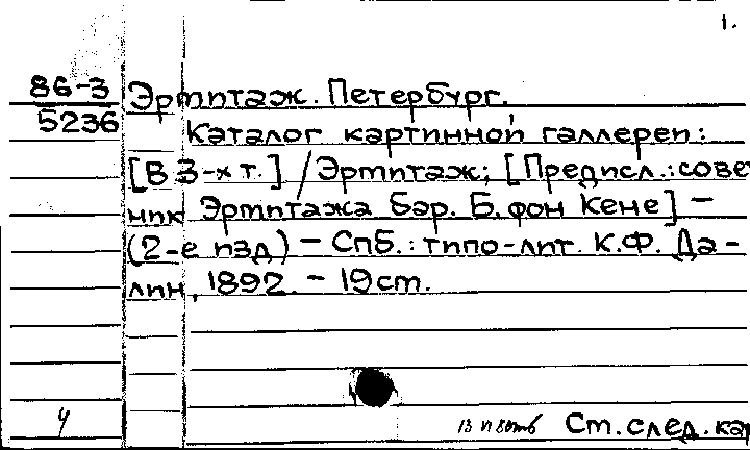 1.
86-3 Эрмитаж. Петербург.
5236 Каталог картинной галлереи:
[В 3-х т.] / Эрмитаж; [Предисл.: сове
ник Эрмитажа бар. Б. фон Кене] –
(2-е изд) – СПБ.: типо-лит. К.Ф. Да-
лин, 1892. – 19 ст.
Ст. след. кар